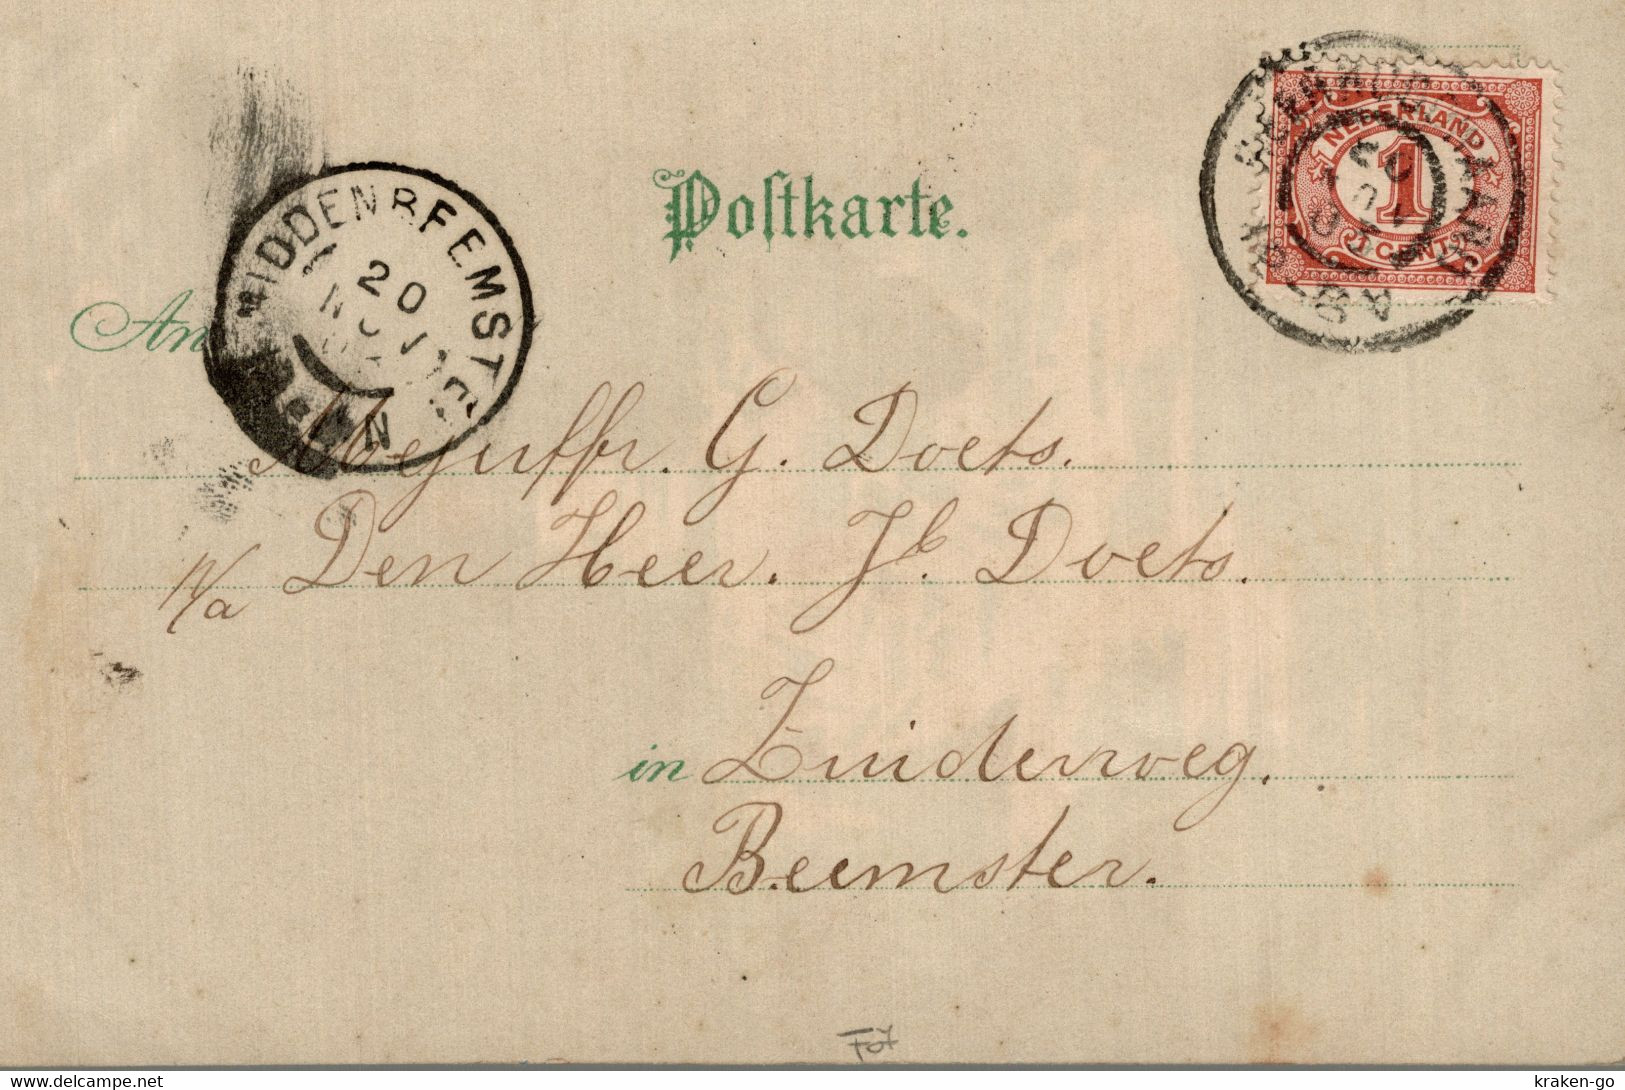 Postkarte.
NEDERLAND
1
1 CENT
MIDDENBEEMSTER
20
NOV
An
Mejuffr. G. Doets.
p/a Den Heer. Jb. Doets.
in Zuiderweg.
Beemster.
For
kraken-go